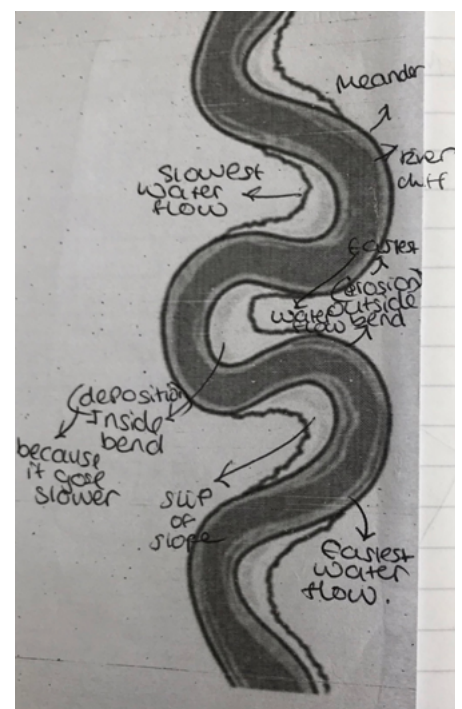 Meander
River
cliff
Slowest
water
flow
Easiest
(erosion)
outside
bend
water
flow
(deposition
Inside
bend
because
it gose
slower
slip
of
slope
Easiest
water
flow.